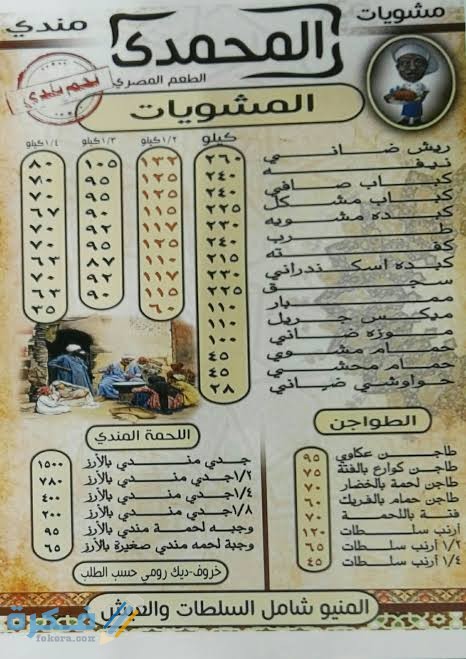 مشويات
مندي
المحمدى
الطعم المصري
بلدي
المشويات
كيلو ١/٢ كيلو ١/٣ كيلو ١/٤ كيلو
ريش ضاني ٢٦٠ ١٣٢ ١٠٥ ٨٠
نيفه ٢٤٠ ١٢٥ ٩٥ ٧٠
كباب صافي ٢٤٠ ١٢٥ ٩٥ ٧٠
كباب مشكل ٢٢٥ ١١٥ ٩٠ ٦٧
كبده مشويه ٢٣٠ ١١٧ ٩٢ ٧٠
طرب ٢٤٠ ١٢٥ ٩٥ ٧٠
كفته ٢١٥ ١١٠ ٨٧ ٦٣
كبده اسكندراني ٢٣٠ ١١٧ ٩٢ ٧٠
سجق ٢٢٥ ١١٥ ٩٠ ٦٣
ممبار ١١٠ ٦٠ ٣٥
ميكس جريل ١١٠
موزه ضاني ١٠٠
حمام مشوي ٤٥
حمام محشي ٤٥
حواوشي ضاني ٢٨
الطواجن
طاجن عكاوي ٩٥
طاجن كوارع بالفتة ٧٥
طاجن لحمة بالخضار ٧٠
طاجن حمام بالفريك ٦٠
فتة باللحمة ٧٠
أرنب سلطات ١٢٠
١/٢ أرنب سلطات ٦٥
١/٤ أرنب سلطات ٤٥
اللحمة المندي
جدي مندي بالأرز ١٥٠٠
١/٢ جدي مندي بالأرز ٧٨٠
١/٤ جدي مندي بالأرز ٤٠٠
١/٨ جدي مندي بالأرز ٢٠٠
وجبه لحمة مندي بالأرز ٩٥
وجبة لحمه مندي صغيرة بالأرز ٦٥
خروف-ديك رومى حسب الطلب
المنيو شامل السلطات والعيش
فكرة
fekera.com